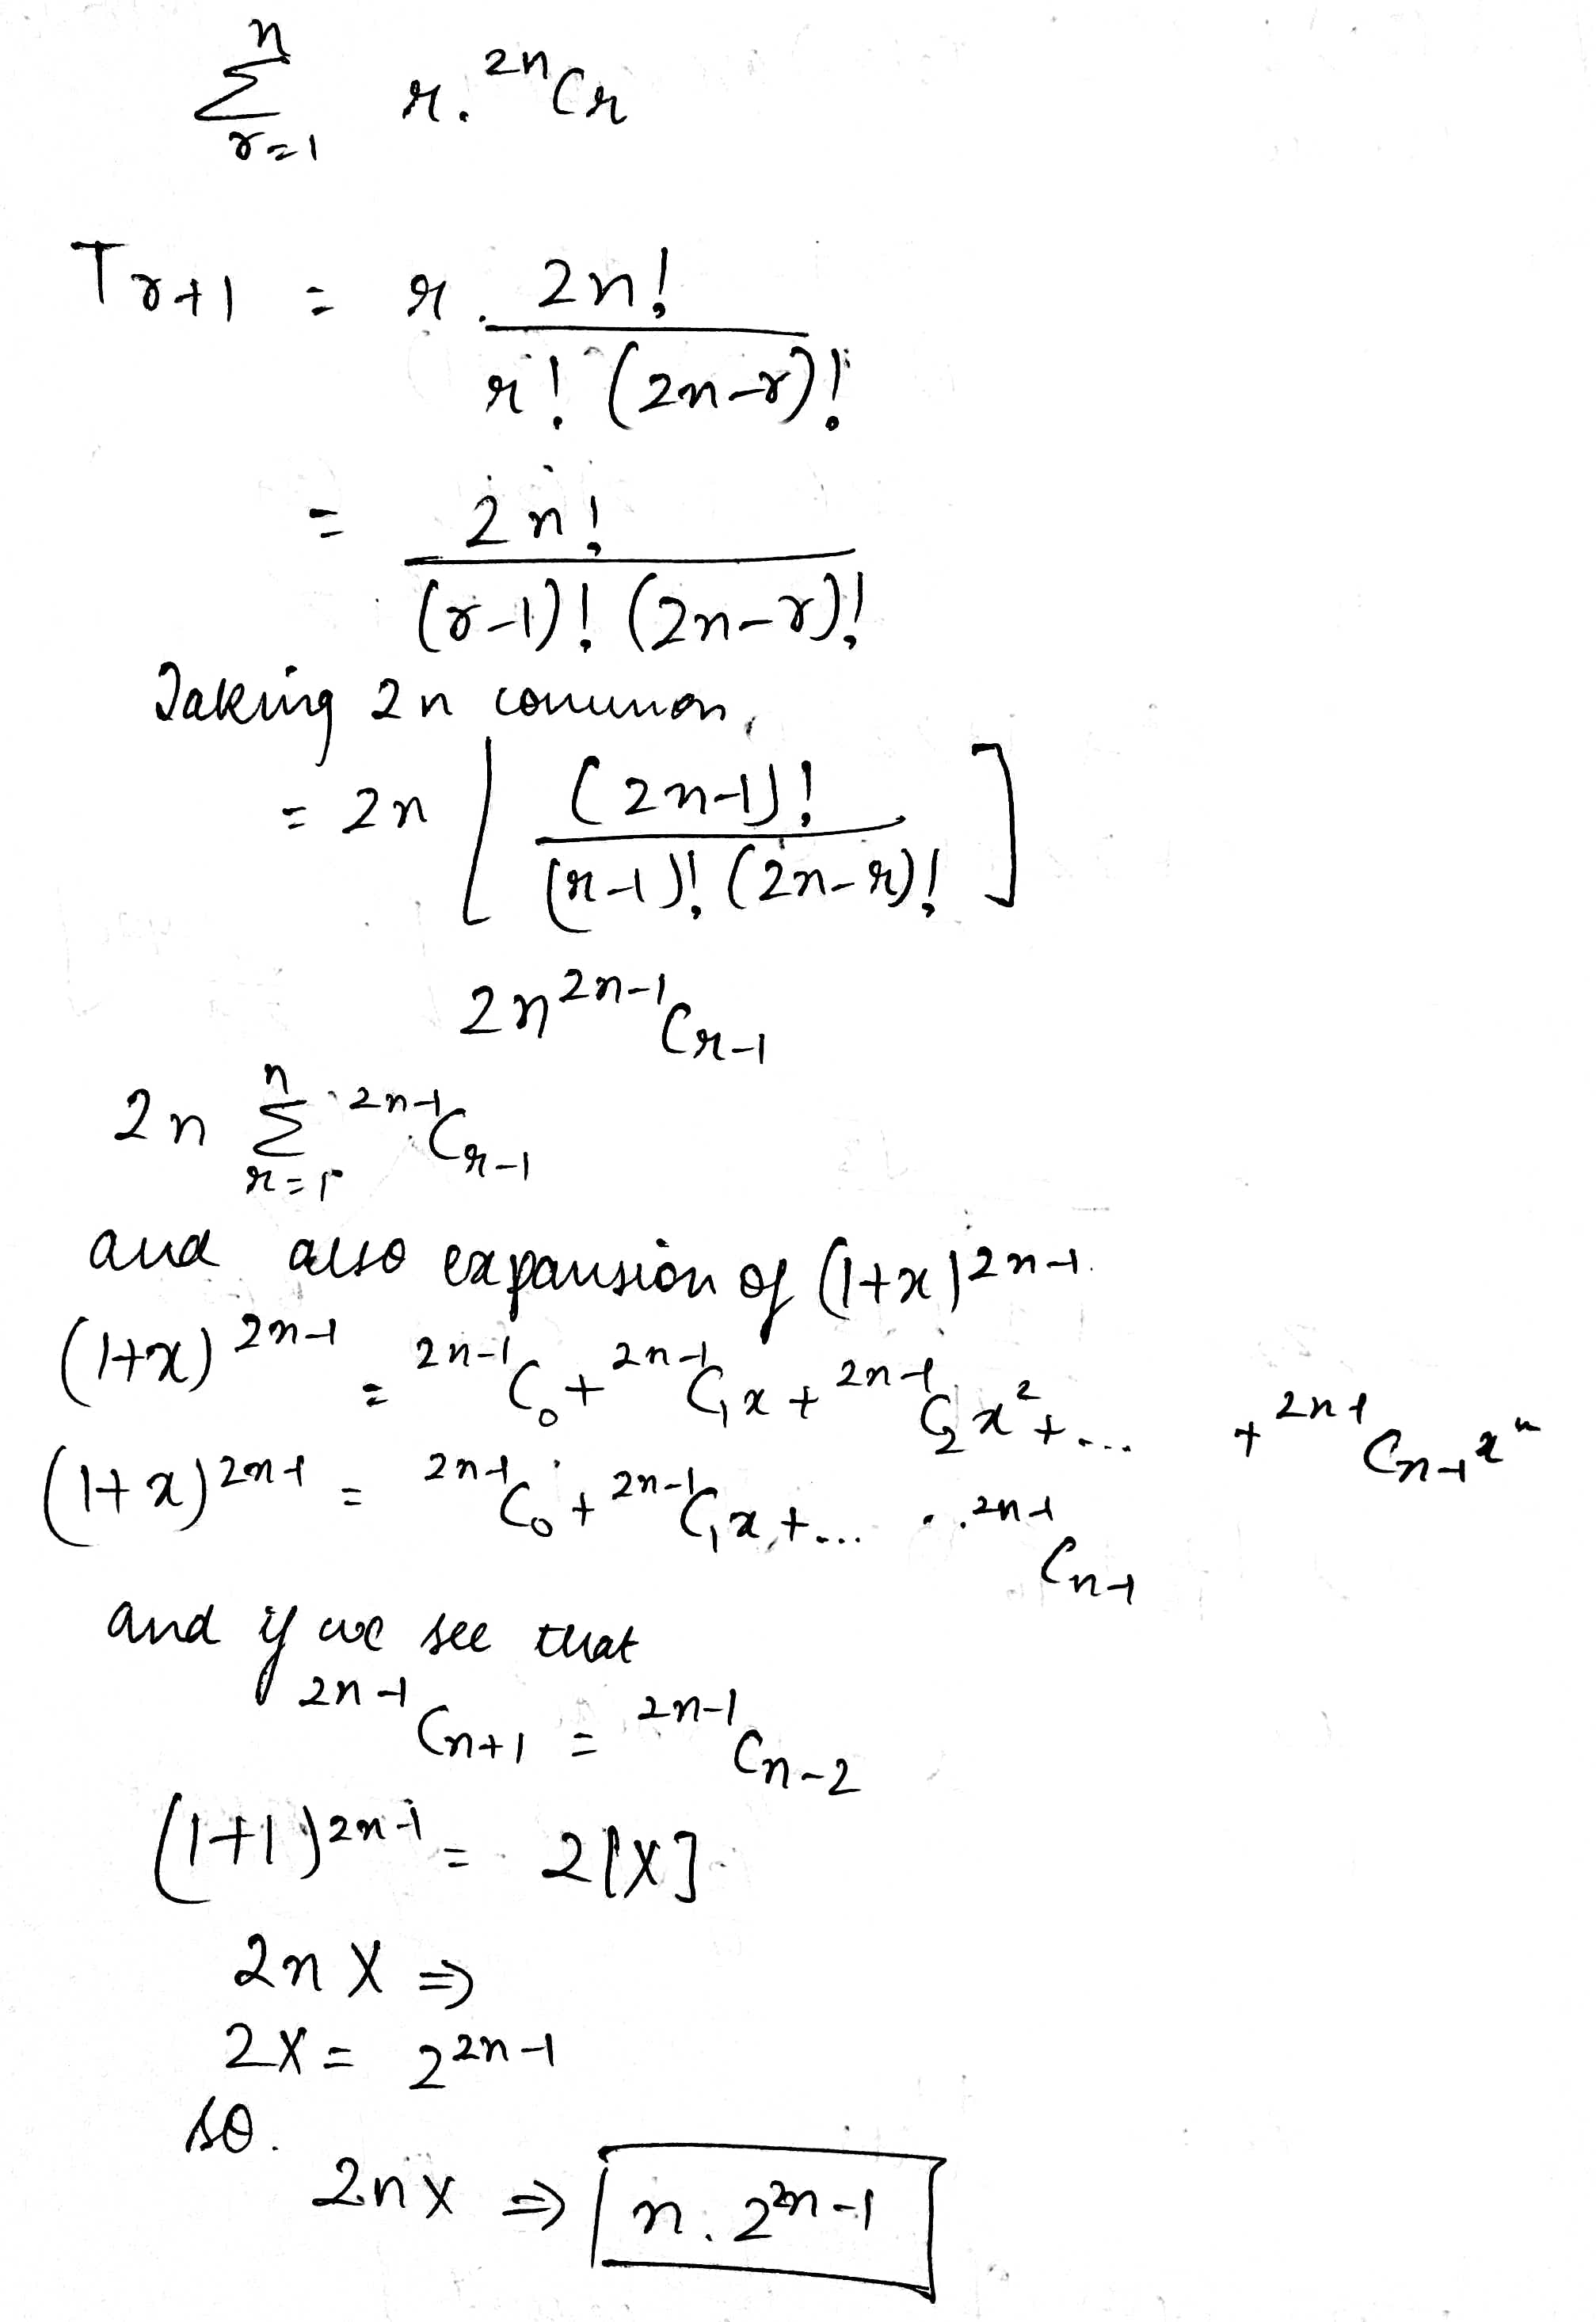 n
Σ r. ²ⁿCr
r=1
Tr+1 = r. 2n!
r! (2n-r)!
= 2n!
(r-1)! (2n-r)!
Taking 2n common,
= 2n [ (2n-1)!
(r-1)! (2n-r)! ]
2n ²ⁿ⁻¹Cr-1
n
2n Σ ²ⁿ⁻¹Cr-1
r=1
and also expansion of (1+x)²ⁿ⁻¹
(1+x)²ⁿ⁻¹ = ²ⁿ⁻¹C₀ + ²ⁿ⁻¹C₁x + ²ⁿ⁻¹C₂x² + ... + ²ⁿ⁻¹Cn-1 xⁿ
(1+x)²ⁿ⁻¹ = ²ⁿ⁻¹C₀ + ²ⁿ⁻¹C₁x + ... .. ²ⁿ⁻¹Cn-1
and if we see that
²ⁿ⁻¹Cn+1 = ²ⁿ⁻¹Cn-2
(1+1)²ⁿ⁻¹ = 2[X]
2nX ⇒
2X = 2²ⁿ⁻¹
so.
2nX ⇒ n. 2²ⁿ⁻¹